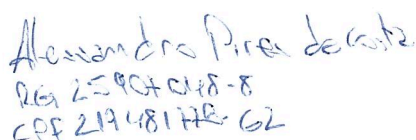 Alexandro Pires da Costa
RG 25907048-8
CPF 219481778-62